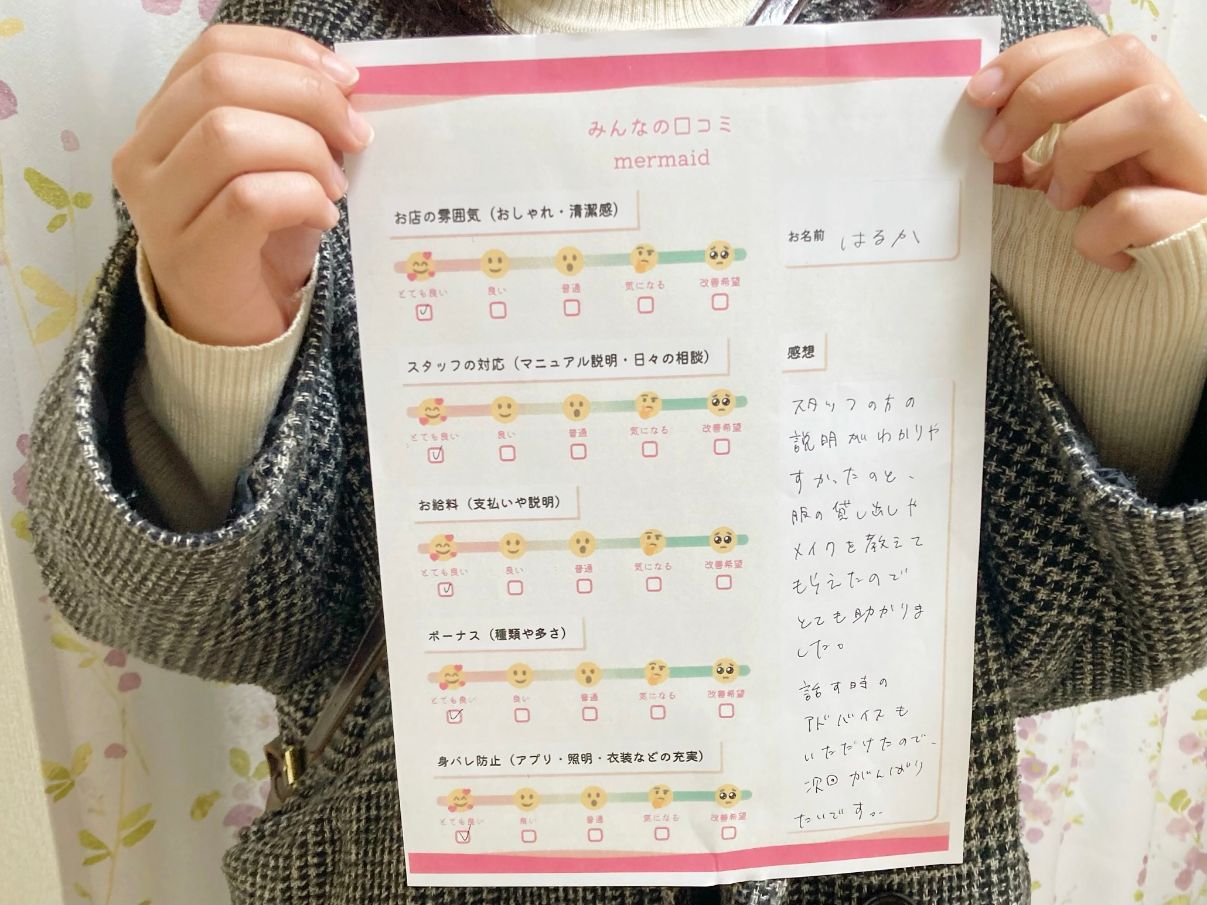 みんなの口コミ
mermaid
お店の雰囲気（おしゃれ・清潔感）
とても良い 良い 普通 気になる 改善希望
スタッフの対応（マニュアル説明・日々の相談）
とても良い 良い 普通 気になる 改善希望
お給料（支払いや説明）
とても良い 良い 普通 気になる 改善希望
ボーナス（種類や多さ）
とても良い 良い 普通 気になる 改善希望
身バレ防止（アプリ・照明・衣装などの充実）
とても良い 良い 普通 気になる 改善希望
お名前 はるか
感想
スタッフの方の
説明がわかりや
すかったのと、
服の貸し出しや
メイクを教えて
もらえたので
とても助かりま
した。
話す時の
アドバイスも
いただけたので、
次回がんばり
たいです。